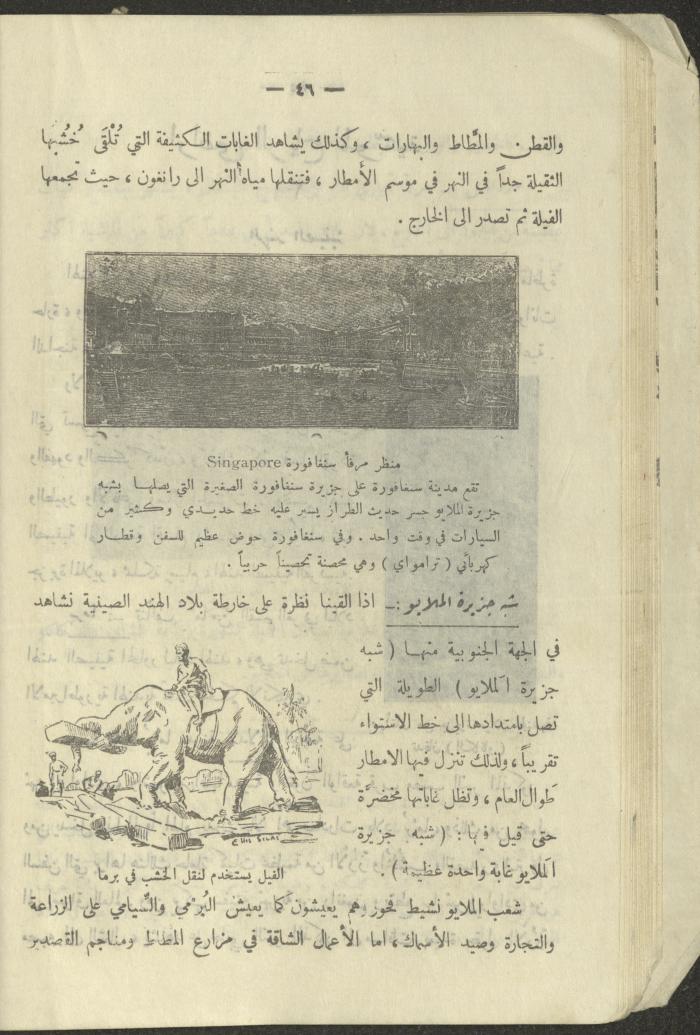 — ٤٦ —
والقطن والمطَّاط والبهارات ، وكذلك يشاهد الغابات الكثيفة التي تُلْقَى خُشُبها
الثقيلة جداً في النهر في موسم الأمطار ، فتنقلها مياه النهر الى رانغون ، حيث تجمعها
الفيلة ثم تصدر الى الخارج .
منظر مرفأ سنغافورة Singapore
تقع مدينة سنغافورة على جزيرة سنغافورة الصغيرة التي يصلها بشبه
جزيرة الملايو جسر حديث الطراز يسير عليه خط حديدي وكثير من
السيارات في وقت واحد . وفي سنغافورة حوض عظيم للسفن وقطار
كهربائي ( ترامواي ) وهي محصنة تحصيناً حربياً .
شبه جزيرة الملايو :ـ اذا القينا نظرة على خارطة بلاد الهند الصينية نشاهد
في الجهة الجنوبية منها ( شبه
جزيرة الملايو ) الطويلة التي
تصل بامتدادها الى خط الاستواء
تقريباً ، ولذلك تنزل فيها الامطار
طوال العام ، وتظل غاباتها مخضرَّة
حتى قيل فيها : ( شبه جزيرة
الملايو غابة واحدة عظيمة ) .
الفيل يستخدم لنقل الخشب في برما
شعب الملايو نشيط فخور وهم يعيشون كما يعيش البُرمي والسِّيامي على الزراعة
والتجارة وصيد الأسماك ، اما الأعمال الشاقة في مزارع المطاط ومناجم القصدير